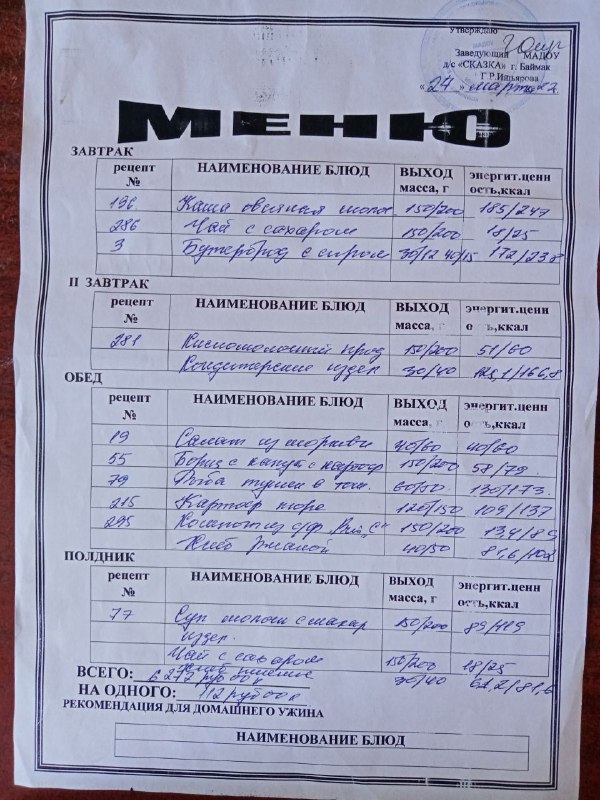 Утверждаю
Заведующий МАДОУ
д/с «СКАЗКА» г. Баймак
Г.Р.Ильярова
«24» марта 22
МЕНЮ
ЗАВТРАК
рецепт № НАИМЕНОВАНИЕ БЛЮД ВЫХОД масса, г энергит.ценн ость,ккал
196 Каша овсяная молоч 150/200 185/247
286 Чай с сахаром 150/200 18/25
3 Бутерброд с сыром 30/12 40/15 172/238
II ЗАВТРАК
рецепт № НАИМЕНОВАНИЕ БЛЮД ВЫХОД масса, г энергит.ценн ость,ккал
281 Кисломолочный прод 150/200 51/60
Кондитерские издел 30/40 /166,8
ОБЕД
рецепт № НАИМЕНОВАНИЕ БЛЮД ВЫХОД масса, г энергит.ценн ость,ккал
19 Салат из моркови 40/60 40/60
55 Борщ с капуст с картоф 150/200 58/79
79 Рыба тушен в том. 60/50 130/173.
215 Картоф пюре 120/150 109/137
295 Компот из с/ф Вит „С" 150/200
Хлеб ржаной 40/50 81,6/102
ПОЛДНИК
рецепт № НАИМЕНОВАНИЕ БЛЮД ВЫХОД масса, г энергит.ценн ость,ккал
77 Суп молоч с макар 150/200 89/119
издел.
Чай с сахаром 150/200 18/25
Хлеб пшенич 30/40 61,2/81,6
ВСЕГО: 6272 руб 00 к
НА ОДНОГО: 112 руб 00 к
РЕКОМЕНДАЦИЯ ДЛЯ ДОМАШНЕГО УЖИНА
НАИМЕНОВАНИЕ БЛЮД